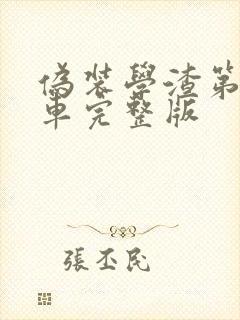 偽裝學渣第
車完整版
張丕民